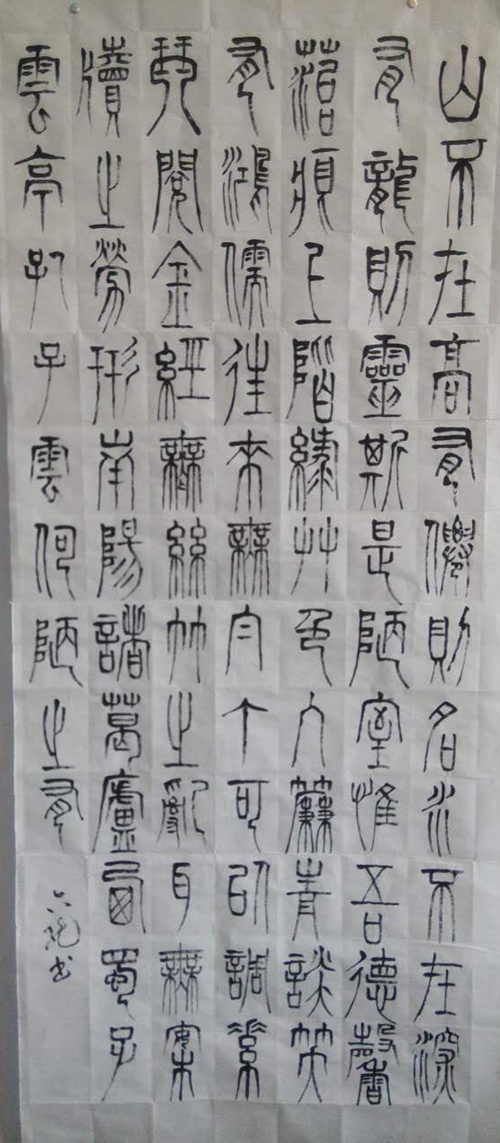 山不在高有僊則名水不在深
有龍則靈斯是陋室惟吾德馨
菭痕上階綠艸色入簾青談笑
有鴻儒往來無白丁可以調素
琴閱金經無絲竹之亂耳無案
牘之勞形南陽諸葛廬西蜀子
雲亭孔子雲何陋之有
书